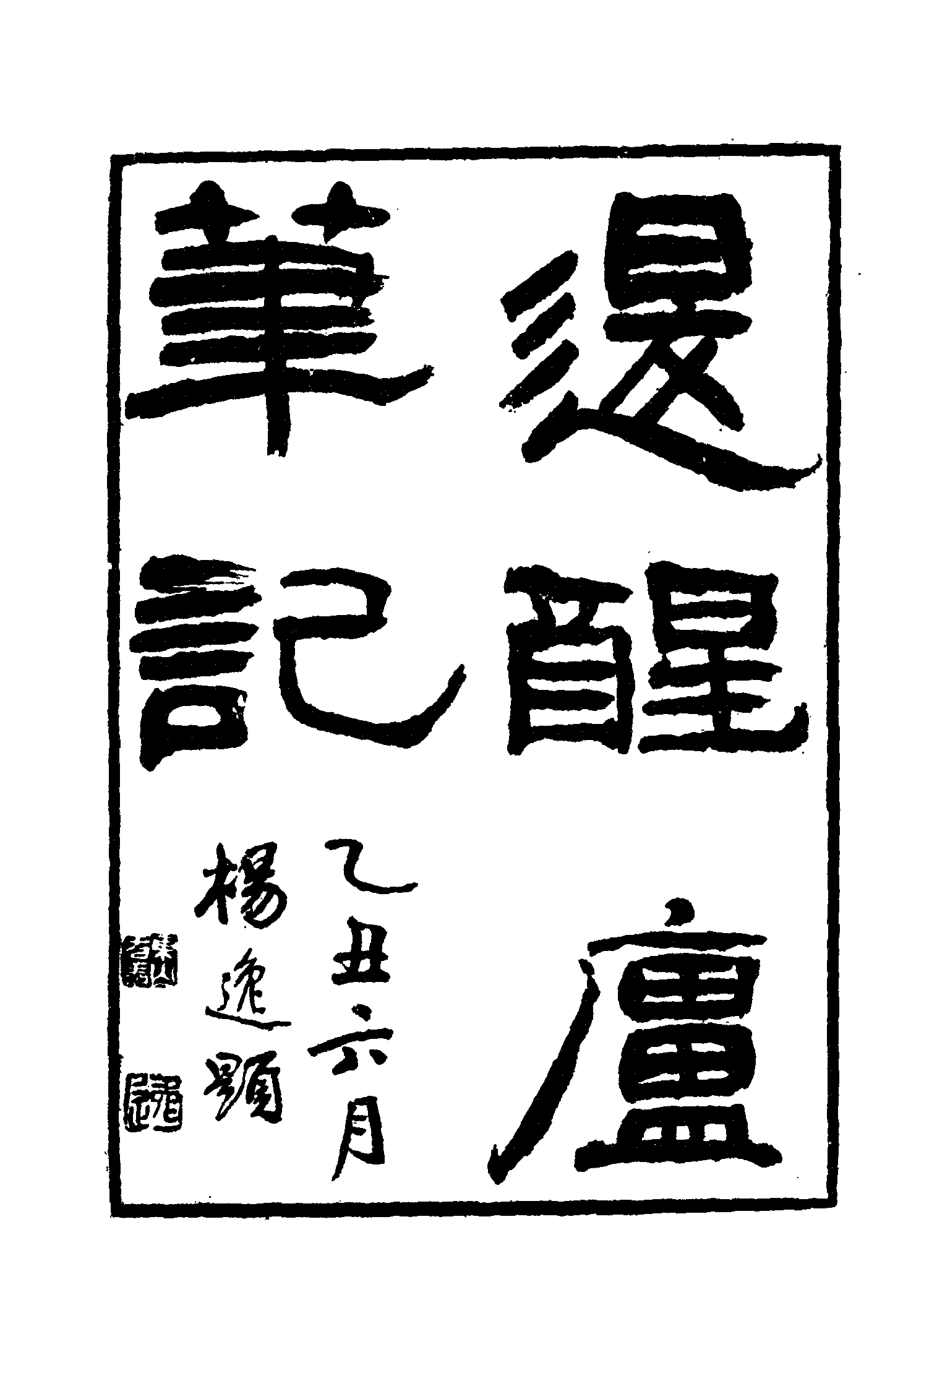 退醒廬
筆記
乙丑六月
楊逸題